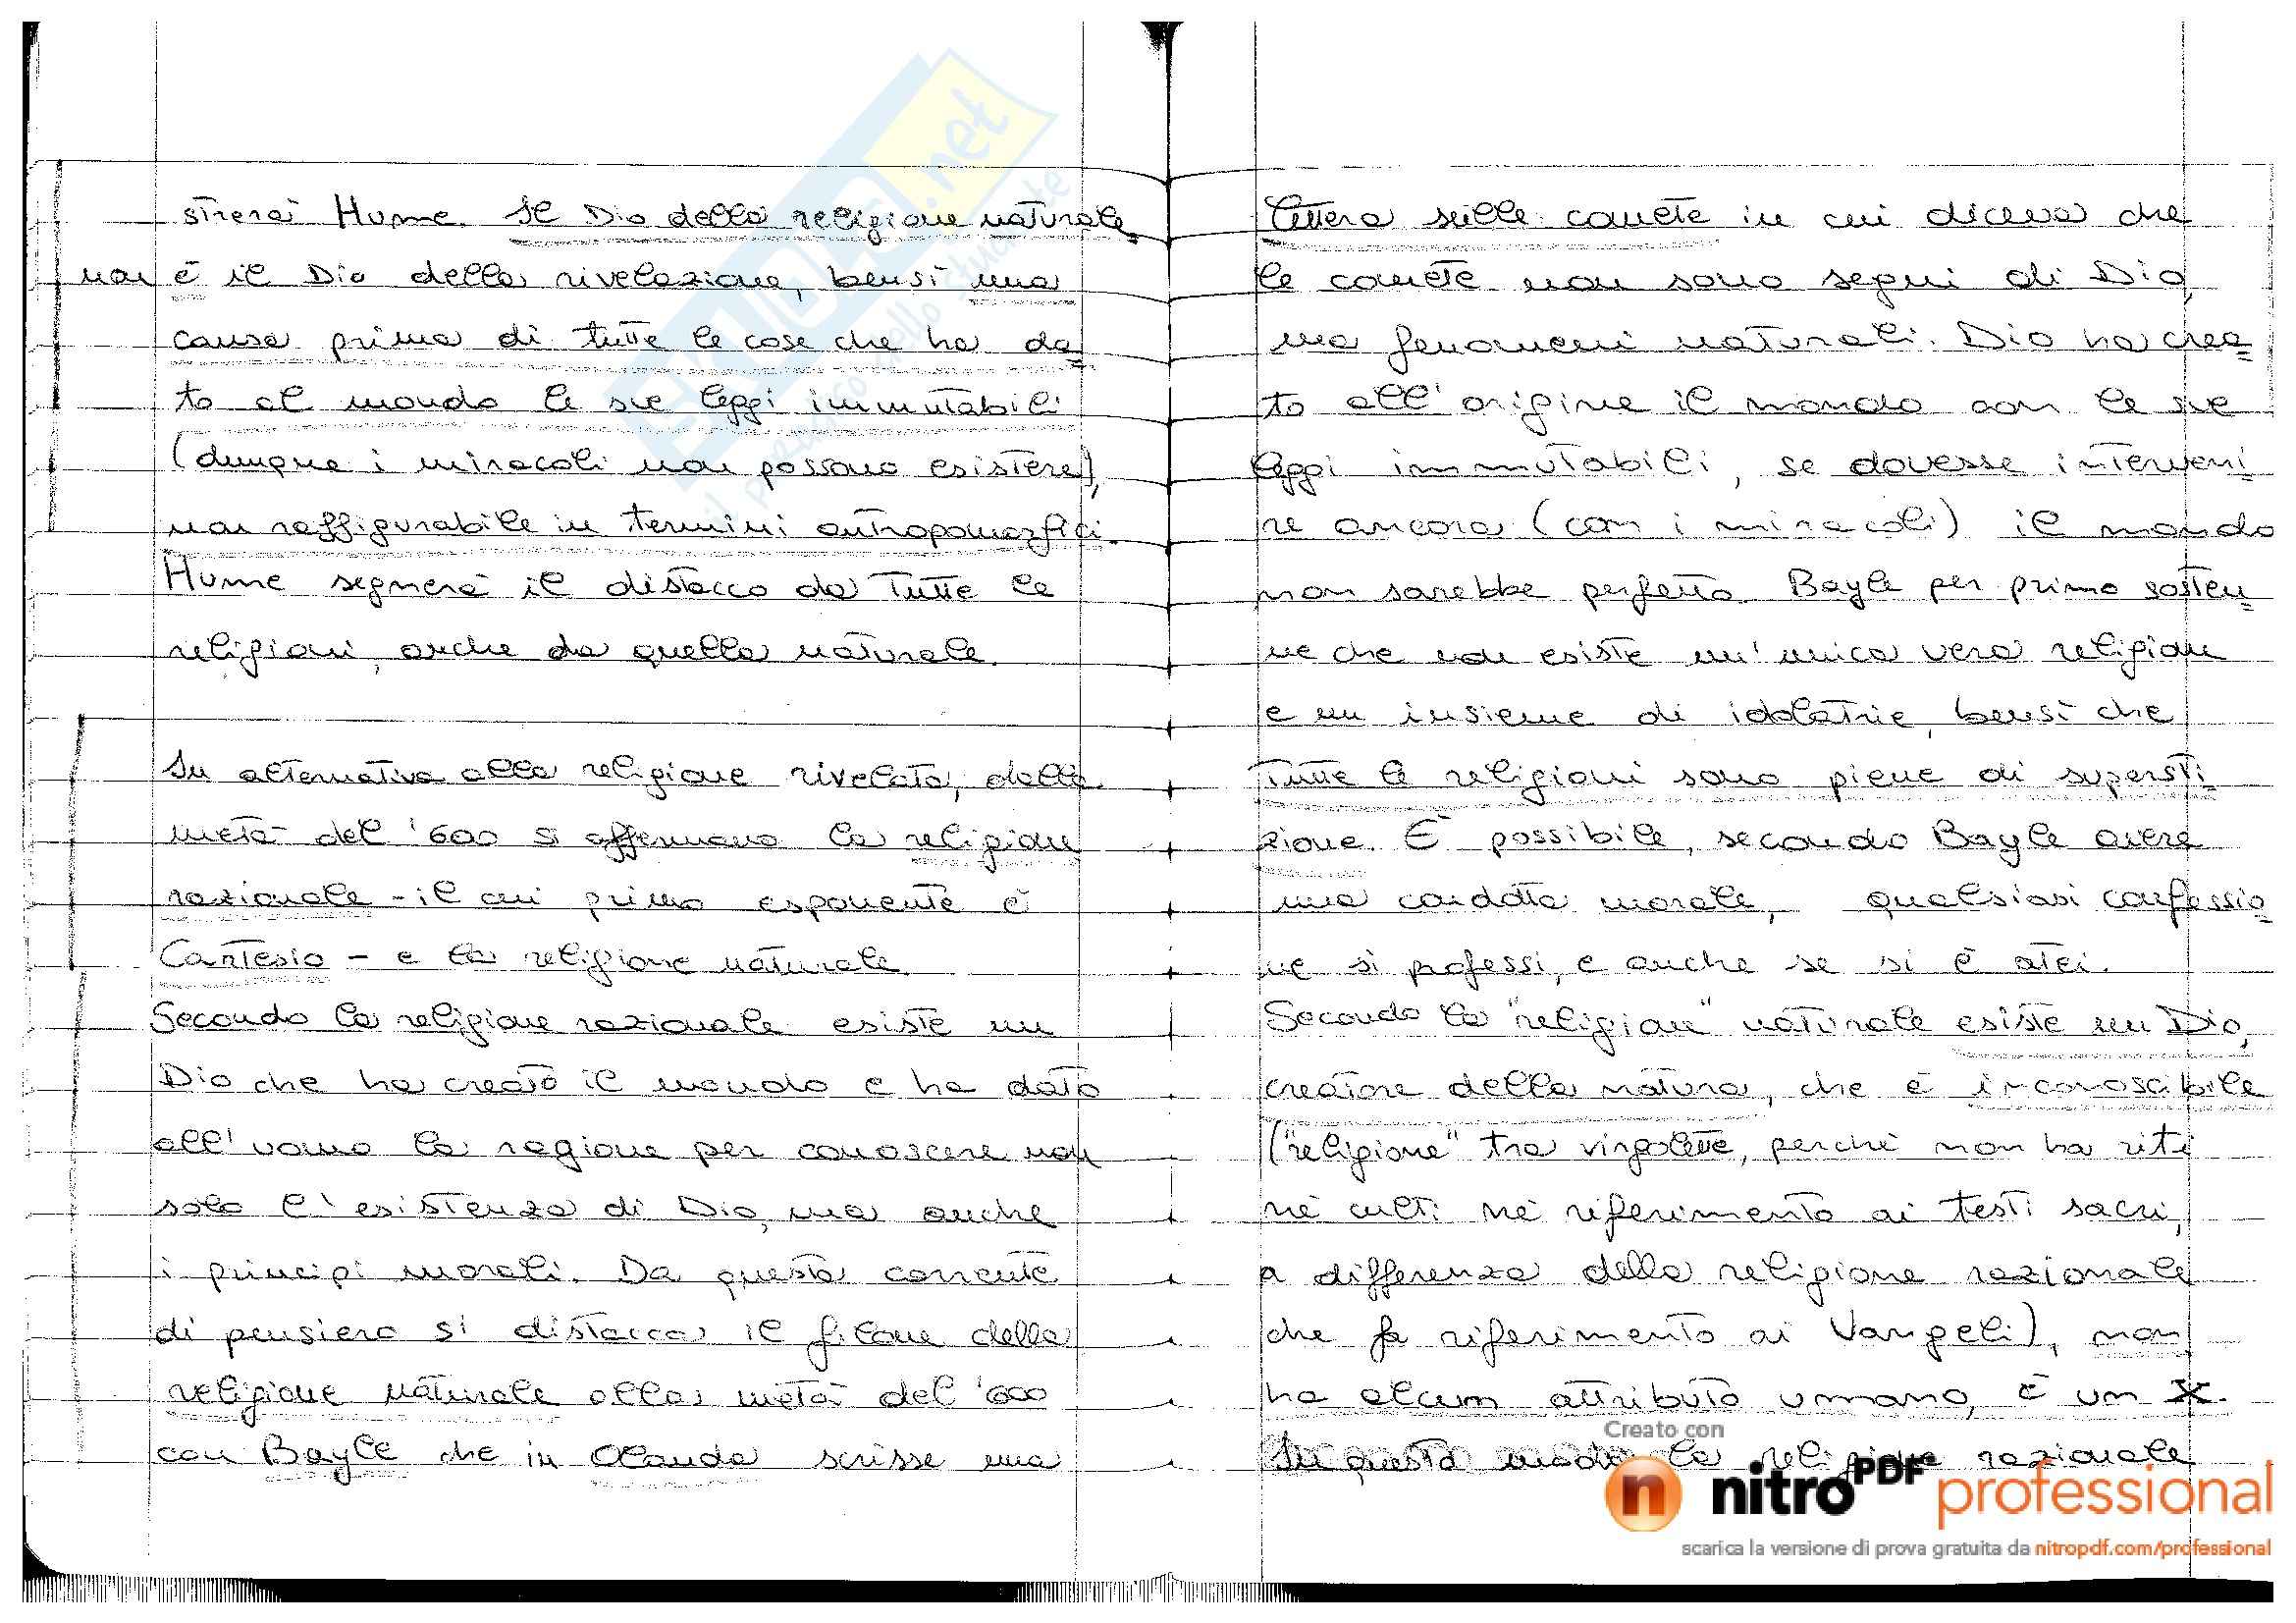 strerà Hume. Il Dio della religione naturale
non è il Dio della rivelazione, bensì una
causa prima di tutte le cose che ha da=
to al mondo le sue leggi immutabili
(dunque i miracoli non possono esistere),
non raffigurabile in termini antropomorfici.
Hume segnerà il distacco da tutte le
religioni, anche da quella naturale.
In alternativa alla religione rivelata, dalla
metà del '600 si affermano la religione
razionale - il cui primo esponente è
Cartesio - e la religione naturale.
Secondo la religione razionale esiste un
Dio che ha creato il mondo e ha dato
all'uomo la ragione per conoscere non
solo l'esistenza di Dio, ma anche
i principi morali. Da questa corrente
di pensiero si distacca il filone della
religione naturale alla metà del '600
con Bayle che in Olanda scrisse una
lettera sulle comete in cui diceva che
le comete non sono segni di Dio,
ma fenomeni naturali. Dio ha crea=
to all'origine il mondo con le sue
leggi immutabili, se dovesse interveni=
re ancora (con i miracoli) il mondo
non sarebbe perfetto. Bayle per primo sosten=
ne che non esiste un'unica vera religione
e un insieme di idolatrie, bensì che
tutte le religioni sono piene di supersti=
zione. È possibile, secondo Bayle avere
una condotta morale, qualsiasi confessio=
ne si professi, e anche se si è atei.
Secondo la "religione" naturale esiste un Dio,
creatore della natura, che è inconoscibile
("religione" tra virgolette, perchè non ha riti
nè culti nè riferimento ai testi sacri,
a differenza della religione razionale
che fa riferimento ai Vangeli), non
ha alcun attributo umano, è un X.
In questo modo la religione razionale
Creato con
nitro PDF professional
scarica la versione di prova gratuita da nitropdf.com/professional